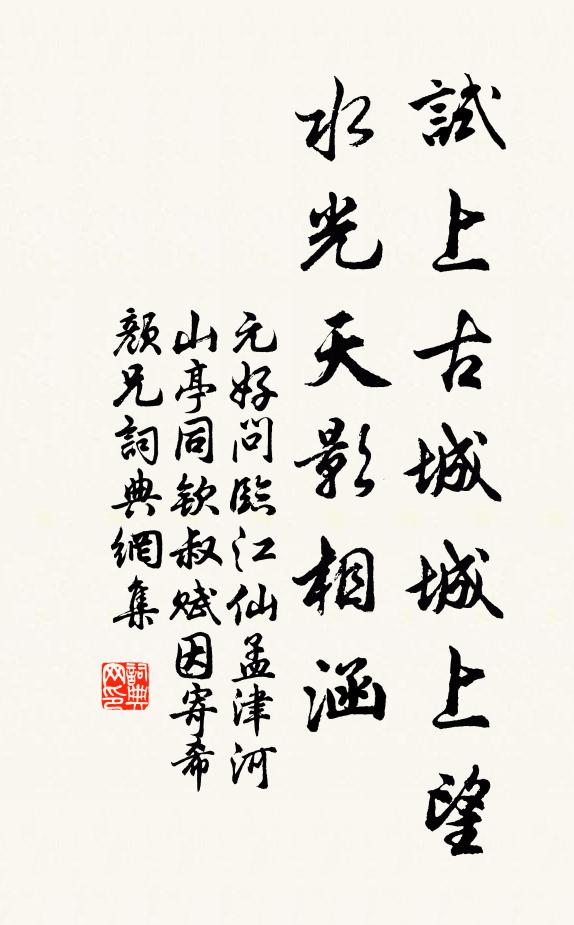 試上古城城上望
水光天影相涵
元好問臨江仙孟津河
山亭同欽叔賦因寄希
顏兄詞典網集
詞典
网印